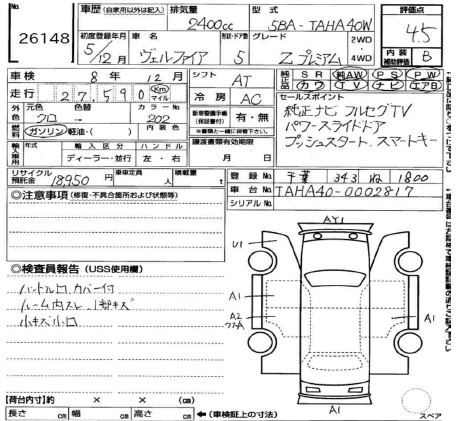 No.
26148
車歴 (自家用以外は記入)
排気量
2400cc
型式
5BA-TAHA40W
評価点
4.5
初度登録年月
5/12月
車名
ヴェルファイア
形状・ドア数
5
グレード
Zプレミアム
2WD
・
4WD
内装
補助評価
B
車検
8年 12月
シフト
AT
純正品
SR 純AW PS PW
カワ TV ナビ エアB
走行
27,590
Km
マイル
冷房
AC
セールスポイント
純正ナビ フルセグTV
パワースライドドア
プッシュスタート、スマートキー
外色
元色
クロ
色替
カラーNo
202
新車整備手帳
(保証書付)
有・無
※書類と一緒に保管下さい。
燃料
ガソリン・軽油・( )
内装色
譲渡書類有効期限
月 日
輸入車用
年式
輸入区分
ディーラー・並行
ハンドル
左・右
リサイクル
預託金
18950円
乗車定員
人
積載量
t
登録No.
千葉 343 ね 1800
車台No.
TAHA40-0002817
シリアルNo.
◎注意事項 (修復・不具合箇所および状態等)
◎検査員報告 (USS使用欄)
ハンドル口、カバー付
ルーム内スレ、1部キズ
小キズ小口
AY1
U1
A1
A2
A1
A1
スペア
【荷台内寸】約 × × (cm)
長さ cm 幅 cm 高さ cm
←(車検証上の寸法)